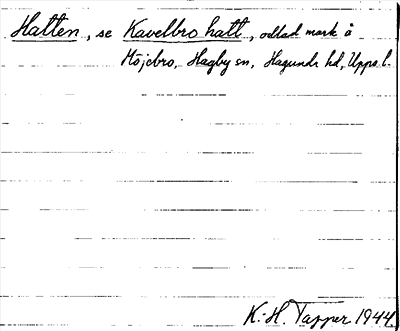 Hatten, se Kavelbro hatt, odlad mark å
Möjebro, Hagby sn, Hagunda hd, Uppsa l.
K:H. Tapper 1944